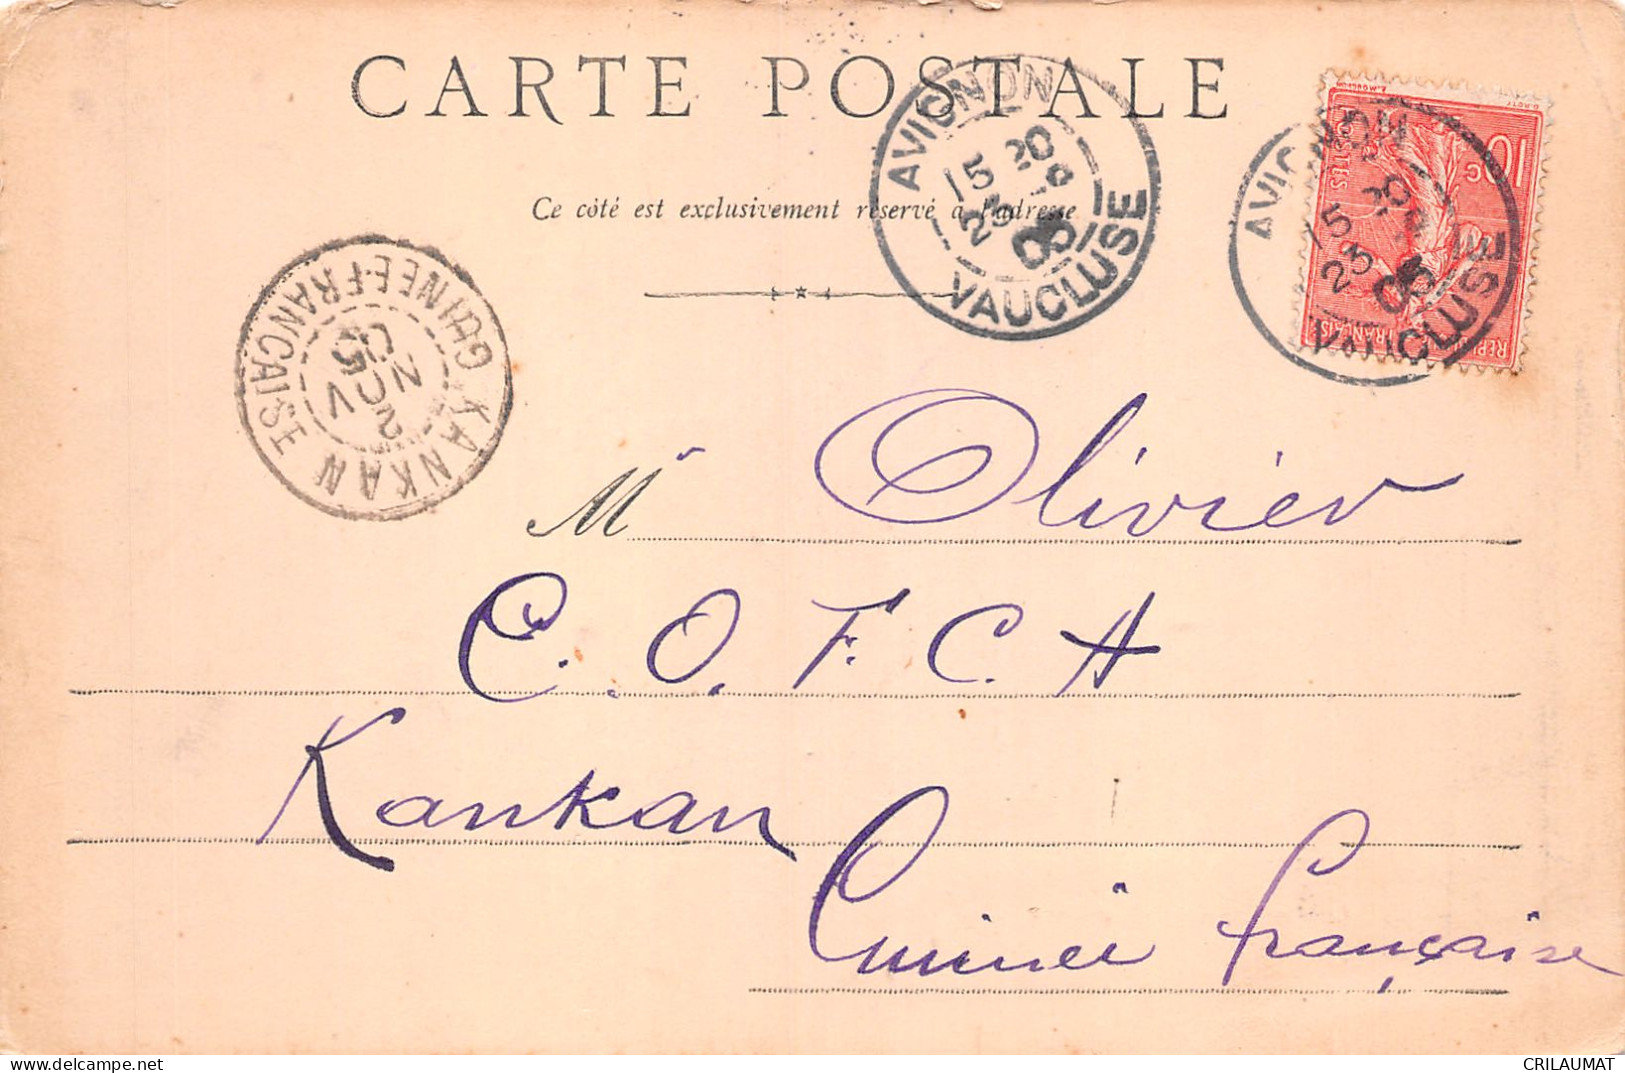 CARTE POSTALE
Ce côté est exclusivement réservé à l'adresse
AVIGNON
15 20
23
05
VAUCLUSE
AVIGNON
15 20
23
05
VAUCLUSE
10c
POSTES
KANKAN
GUINEE-FRANÇAISE
2
NOV
05
Mr Olivier
C. O. F. C. A
Kankan
Guinée française
CRILAUMAT